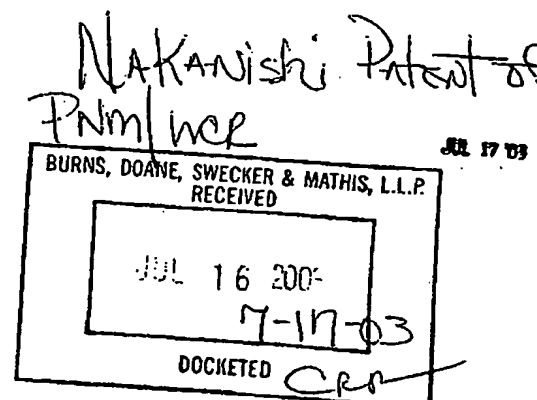 Nakanishi Patent of
PNM/WCR
JUL 17 '03
BURNS, DOANE, SWECKER & MATHIS, L.L.P.
RECEIVED
JUL 16 200
7-17-03
DOCKETED